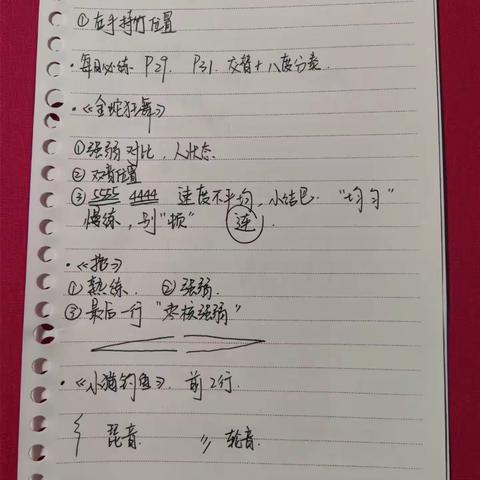 ①左手持竹位置
·每日必练 P29. P31. 交替+八度分类.
·《金蛇狂舞》
①强弱对比,人状态.
②双音位置
③5555 4444 速度不平均,小结巴. "均匀"
慢练,与"顿" 连.
①熟练. ②强弱.
③最后一行"枣核强弱"
·《小猫钓鱼》. 前2行.
琵音. 轮音.